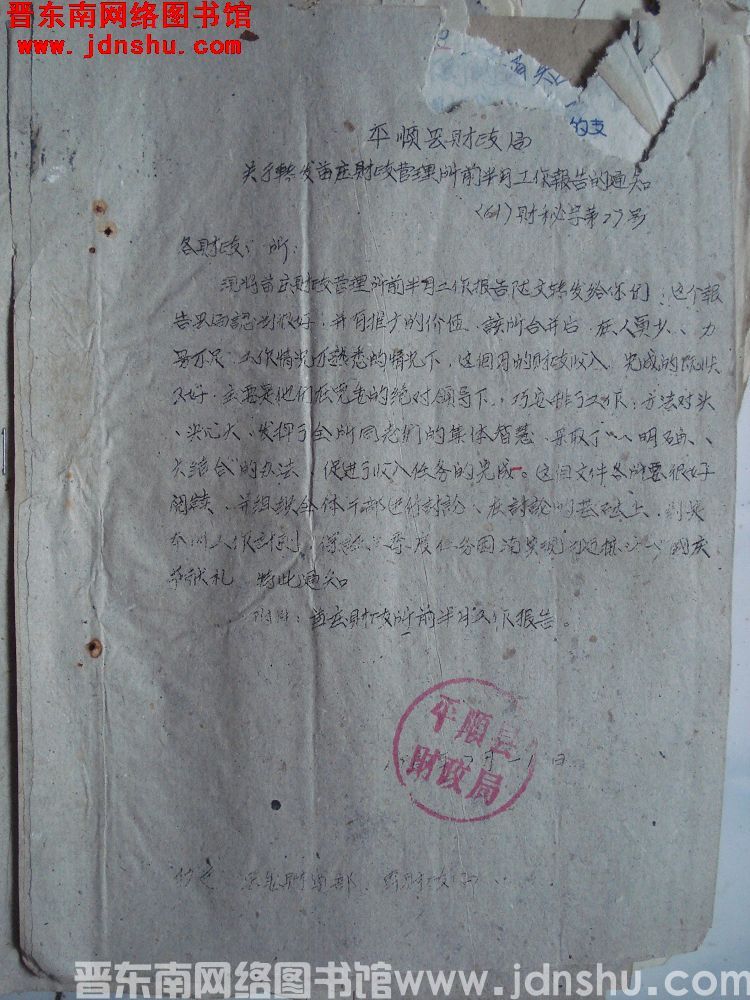 晋东南网络图书馆
www.jdnshu.com
的支
平顺县财政局
关于转发苗庄财政管理所前半月工作报告的通知
(61)财秘字第27号
各财政 所:
现将苗庄财政管理所前半月工作报告随文转发给你们,这个报
告县局認为很好,并有推广的价值,該所合并后,在人員少、力
量不足,工作情况不熟悉的情况下,这個月的财政收入,完成的
好,主要是他们在党委的绝对領导下,巧安排了工作,方法对头
、决心大,发挥了全所同志們的集体智慧,采取了 明确、
大结合的办法,促进了收入任务的完成。这個文件各所要很好
阅读,并组织全体干部进行討論,在討論的基础上,
工作計划, 任务 国庆
节献礼,特此通知
附件:苗庄财政所前半月工作报告。
平顺县
财政局
日
抄送 财 部、 财政
晋东南网络图书馆www.jdnshu.com